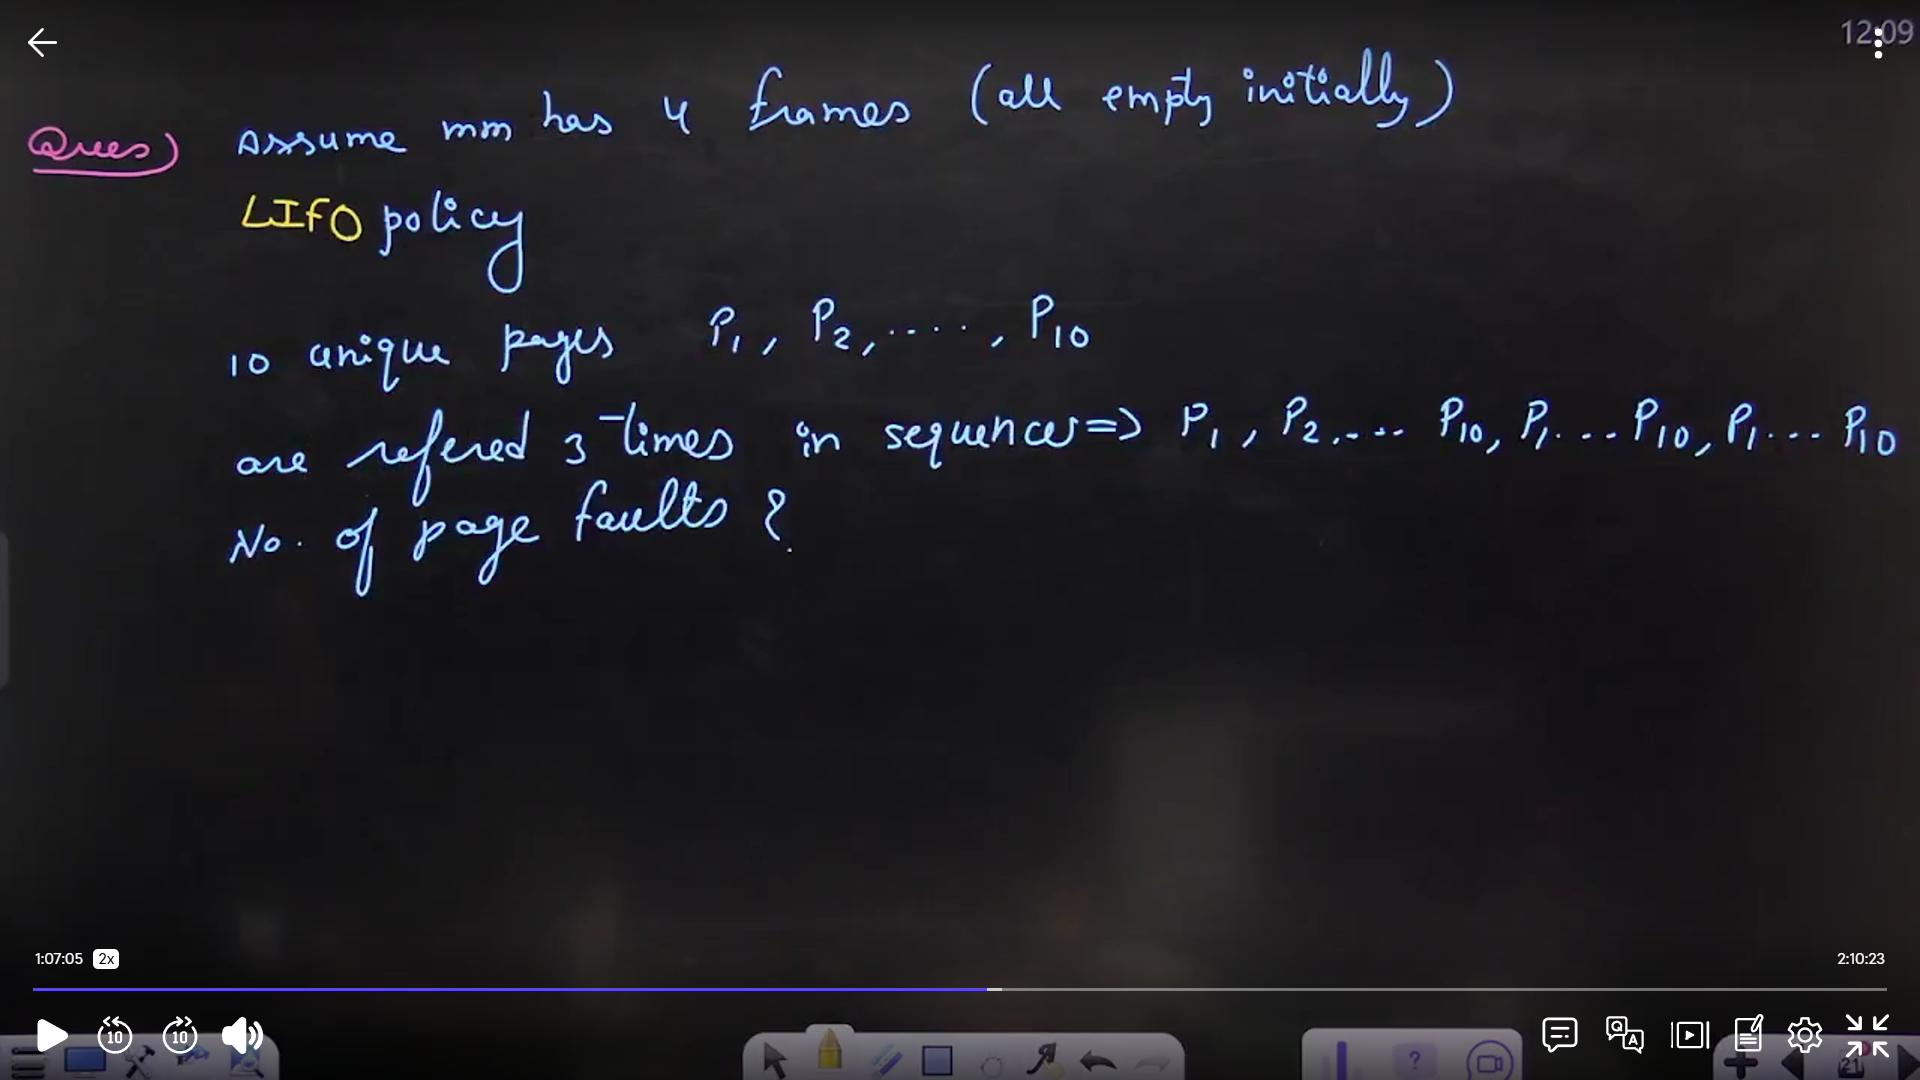 12:09
Ques) Assume mm has 4 frames (all empty initially)
LIFO policy
10 unique pages P1, P2, ...., P10
are refered 3 times in sequence => P1, P2, .... P10, P1 ... P10, P1 ... P10
No. of page faults ?
1:07:05 2x 2:10:23
10 10
21